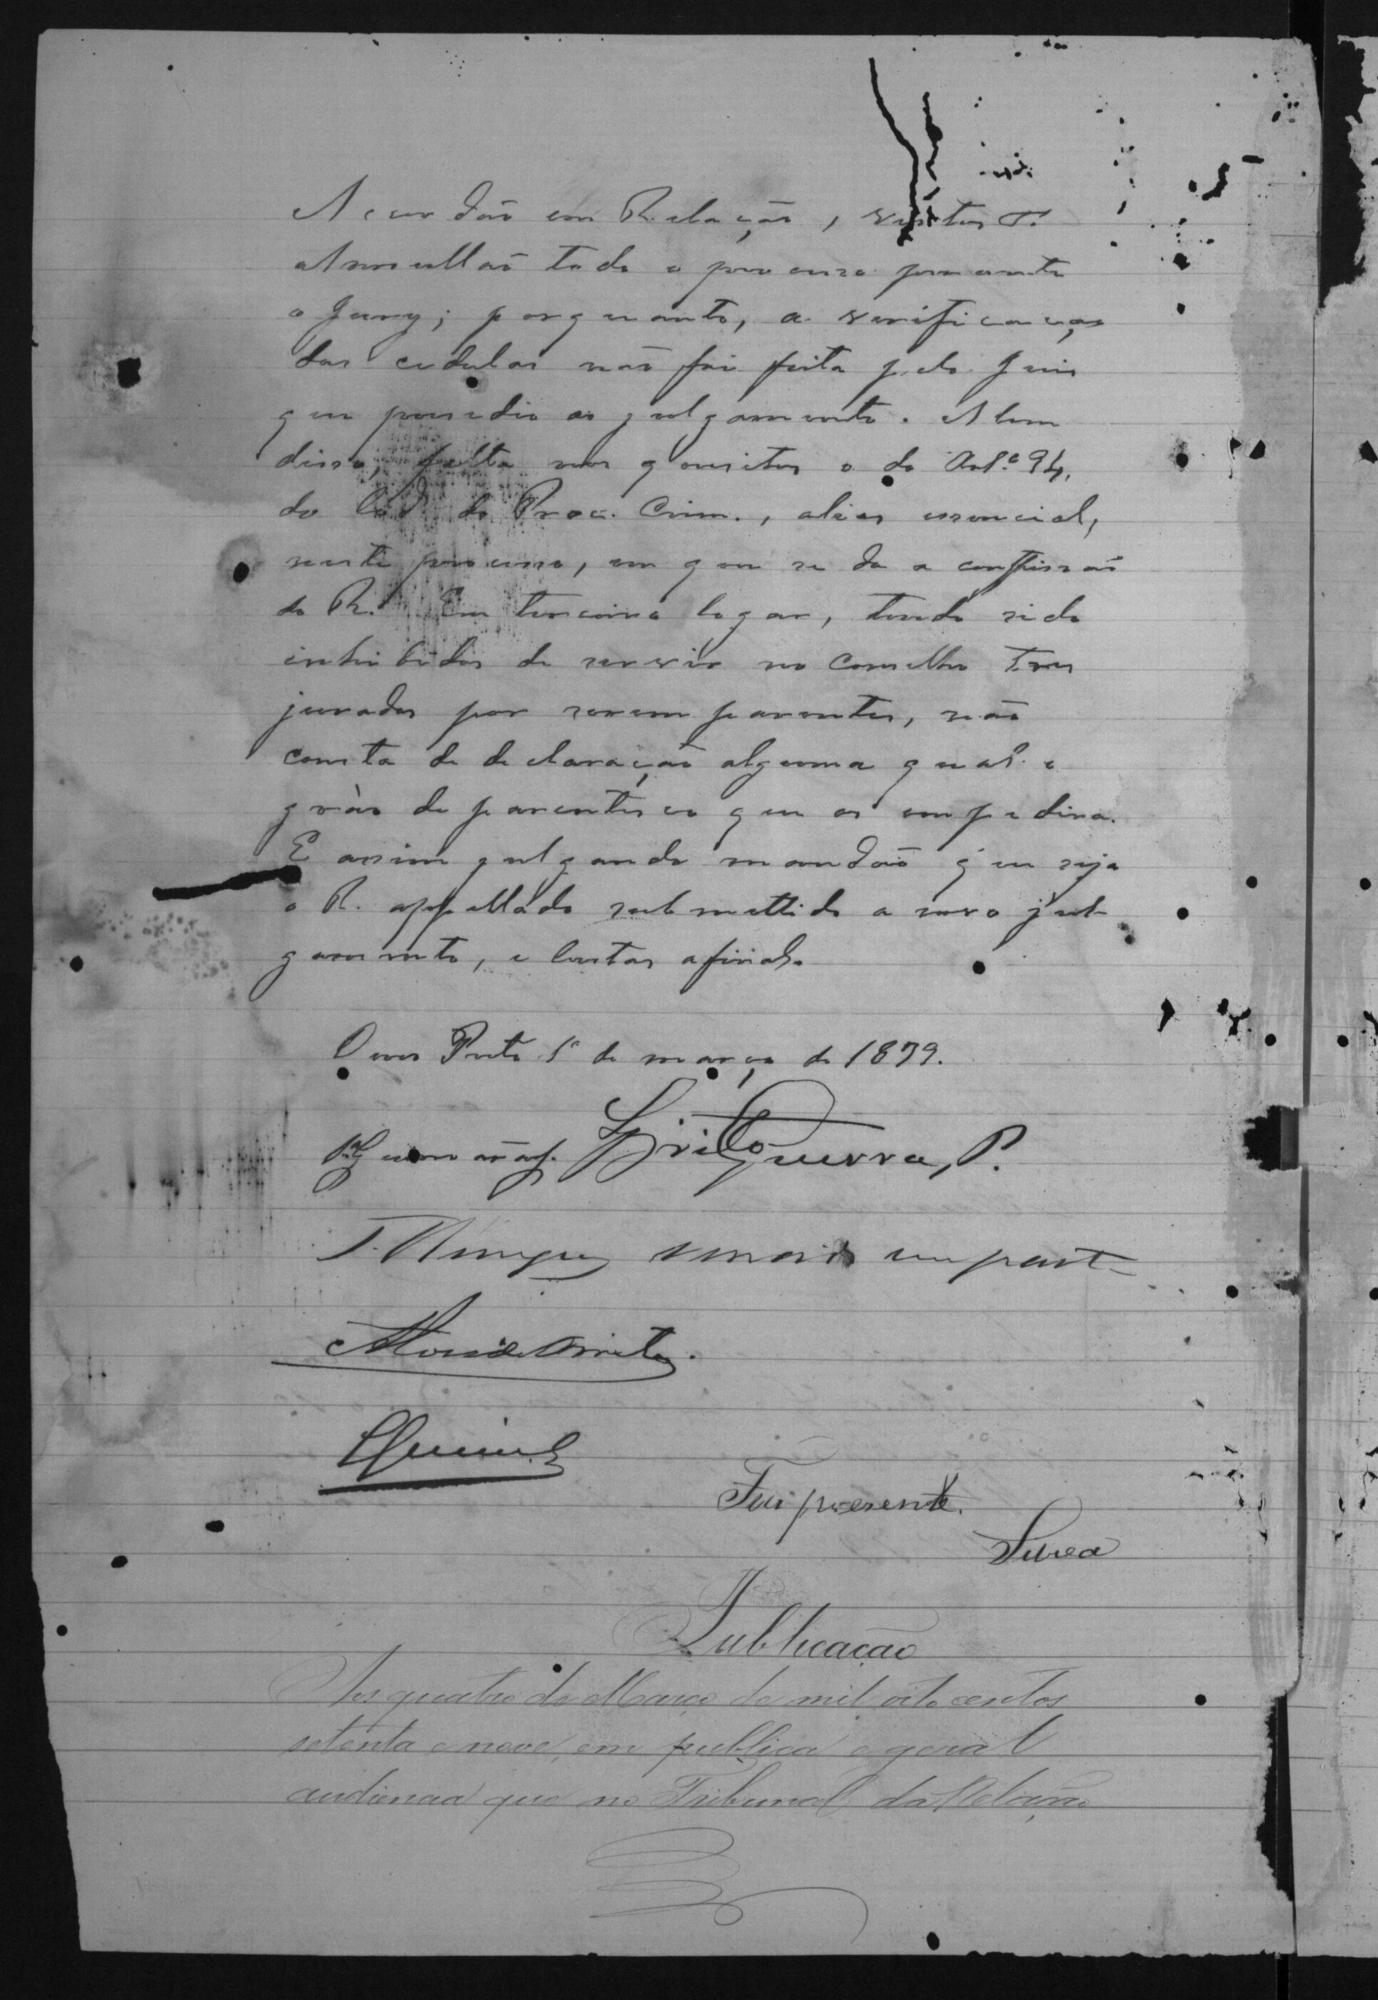 Accordão em Relação, vistos &.
Annullão todo o processo perante
o Jury; porquanto, a verificação
das cedulas não foi feita pelo Juis
que presedio ao julgamento. Alem
disso, falta nos quesitos o do Art.º 94,
do Cod. do Proc. Crim., alias essencial,
neste processo, em que se da a confissão
do R. Em terceiro logar, tendo sido
inhibidos de servir no Conselho tres
jurados por serem parentes, não
consta de declaração alguma qual o
gráo de parentesco que os empedira.
E assim julgando mandão que seja
o R. appellado submettido a novo jul-
gamento, e custas afinal.
Ouro Preto 1º de março de 1879.
Brito Guerra, P.
em parte
Fui presente.
Publicação
Aos quatro de Março de mil oito centos
setenta e nove, em publica e geral
audiencia que no Tribunal da Relação